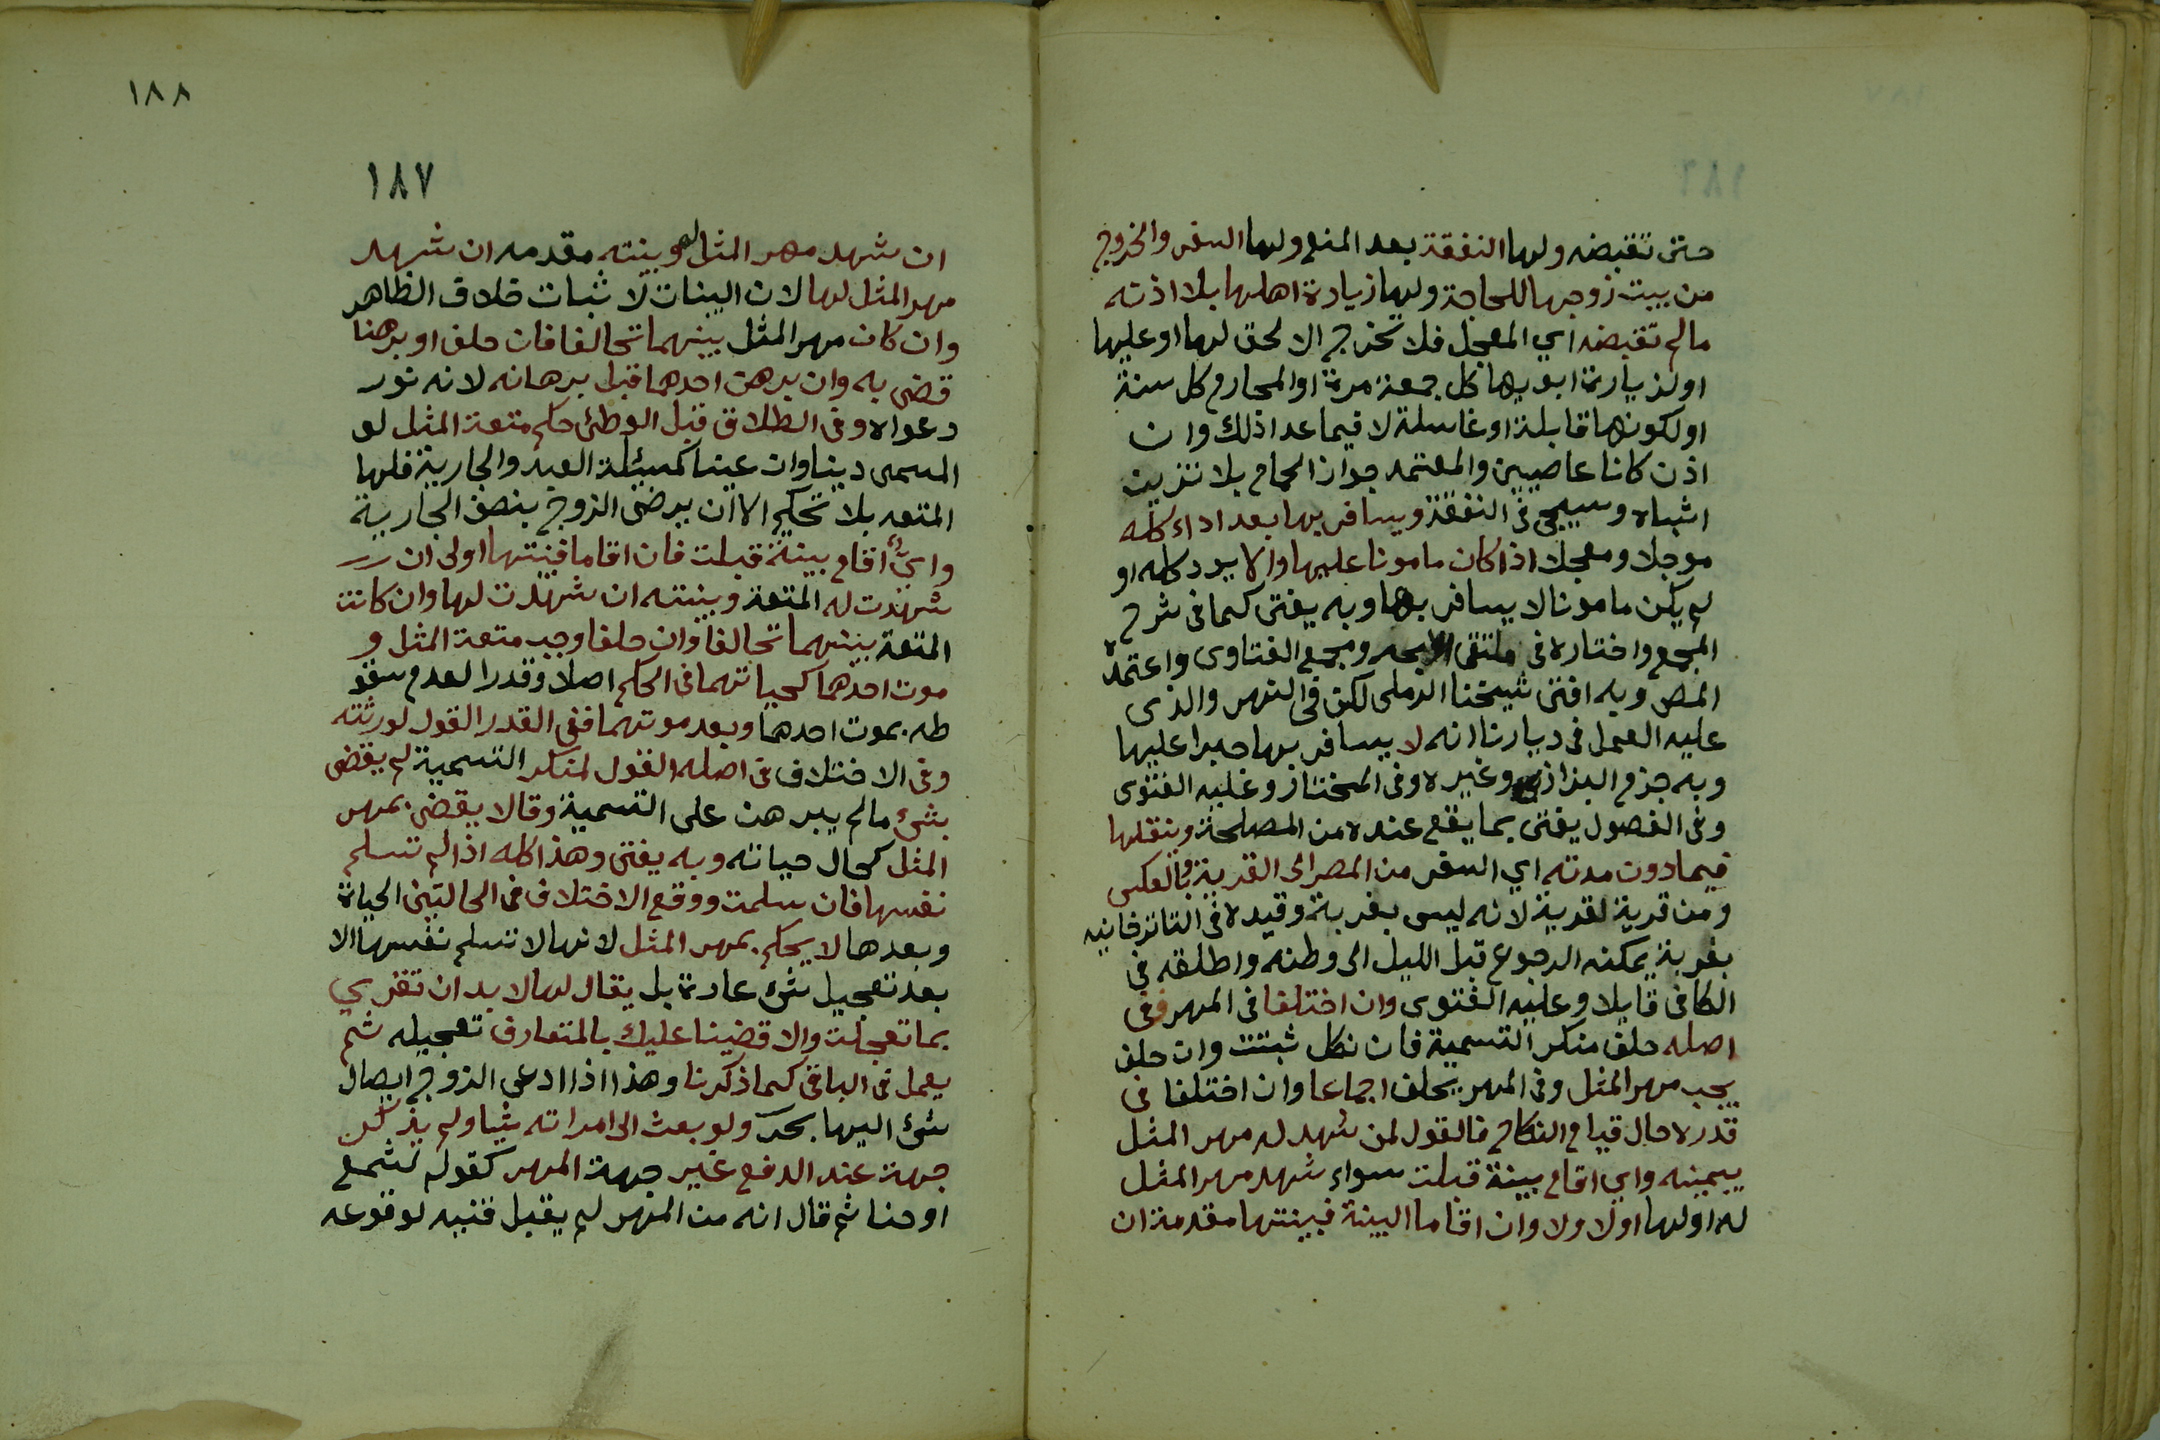 حتى تقبضه ولها النفقة بعد المنع ولها السفر والخروج
من بيت زوجها للحاجة ولها زيادة اهلها بلا اذنه
مالم تقبضه اي المعجل فلا تخرج الا لحق لها او عليها
او لزيارة ابويها كل جمعة مرة او المحارم كل سنة
او لكونها قابلة او غاسلة لا فيما عدا ذلك وان
اذن كانا عاصيين والمعتمد جواز الحمام بلا تزين
اشباه وسيجئ في النفقة ويسافر بها بعد اداء كله
موجلا ومعجلا اذا كان مامونا عليها والا يود كله او
لم يكن مامونا لا يسافر بها وبه يفتى كما في شرح
المجمع واختاره في ملتقى الابحر ومجمع الفتاوى واعتمده
المص وبه افتى شيخنا الرملى لكن في النهر والذى
عليه العمل في ديارنا انه لا يسافر بها جبرا عليها
وبه جزم البزازى وغيره وفى المختار وعليه الفتوى
وفى الفصول يفتى بما يقع عنده من المصلحة وينقلها
فيما دون مدته اي السفر من المصر الى القرية وبالعكس
ومن قرية لقرية لانه ليس بغربة وقيده في التاترخانيه
بقرية يمكنه الرجوع قبل الليل الى وطنه واطلقه في
الكافى قايلا وعليه الفتوى وان اختلفا في المهر ففى
اصله حلف منكر التسمية فان نكل ثبتت وان حلف
يجب مهر المثل وفى المهر يحلف اجماعا وان اختلفا في
قدره حال قيام النكاح فالقول لمن شهد له مهر المثل
بيمينه واي اقام بينة قبلت سواء شهد مهر المثل
له او لها اولا ولا وان اقاما البينة فبينتها مقدمة ان
١٨٨
١٨٧
ان شهد مهر المثل له وبينته مقدمه ان شهد
مهر المثل لها لان البينات لا ثبات خلاف الظاهر
وان كان مهر المثل بينهما تحالفا فان حلف او برهنا
قضى به وان برهن احدهما قبل برهانه لانه نور
دعواه وفى الطلاق قبل الوطئ حكم متعة المثل لو
المسمى دينا وان عينا كمسئلة العبد والجارية فلها
المتعه بلا تحكيم الا ان يرضى الزوج بنصف الجارية
واي اقام بينة قبلت فان اقاما فبينتها اولى ان
شهدت له المتعة وبينته ان شهدت لها وان كانت
المتعة بينهما تحالفا وان حلفا وجب متعة المثل و
موت احدهما كحياتهما في الحكم اصلا وقدرا لعدم سقو
طه بموت احدهما وبعد موتهما ففى القدر القول لورثته
وفى الاختلاف في اصله القول لمنكر التسمية لم يقضى
بشئ مالم يبرهن على التسمية وقالا يقضى بمهر
المثل كحال حياته وبه يفتى وهذا كله اذا لم تسلم
نفسها فان سلمت ووقع الاختلاف في الحالتين الحياة
وبعدها لا يحكم بمهر المثل لانها لا تسلم نفسها الا
بعد تعجيل شئ عادة بل يقال لها لا بد ان تقري
بما تعجلت والا قضينا عليك بالمتعارف تعجيله ثم
يعمل في الباقى كما ذكرنا وهذا اذا ادعى الزوج ايصال
شئ اليها بحر ولو بعث الى امراته شيا ولم يذكر
جهة عند الدفع غير جهة المهر كقوله لشمع
او حنا ثم قال انه من المهر لم يقبل قنيه لوقوعه